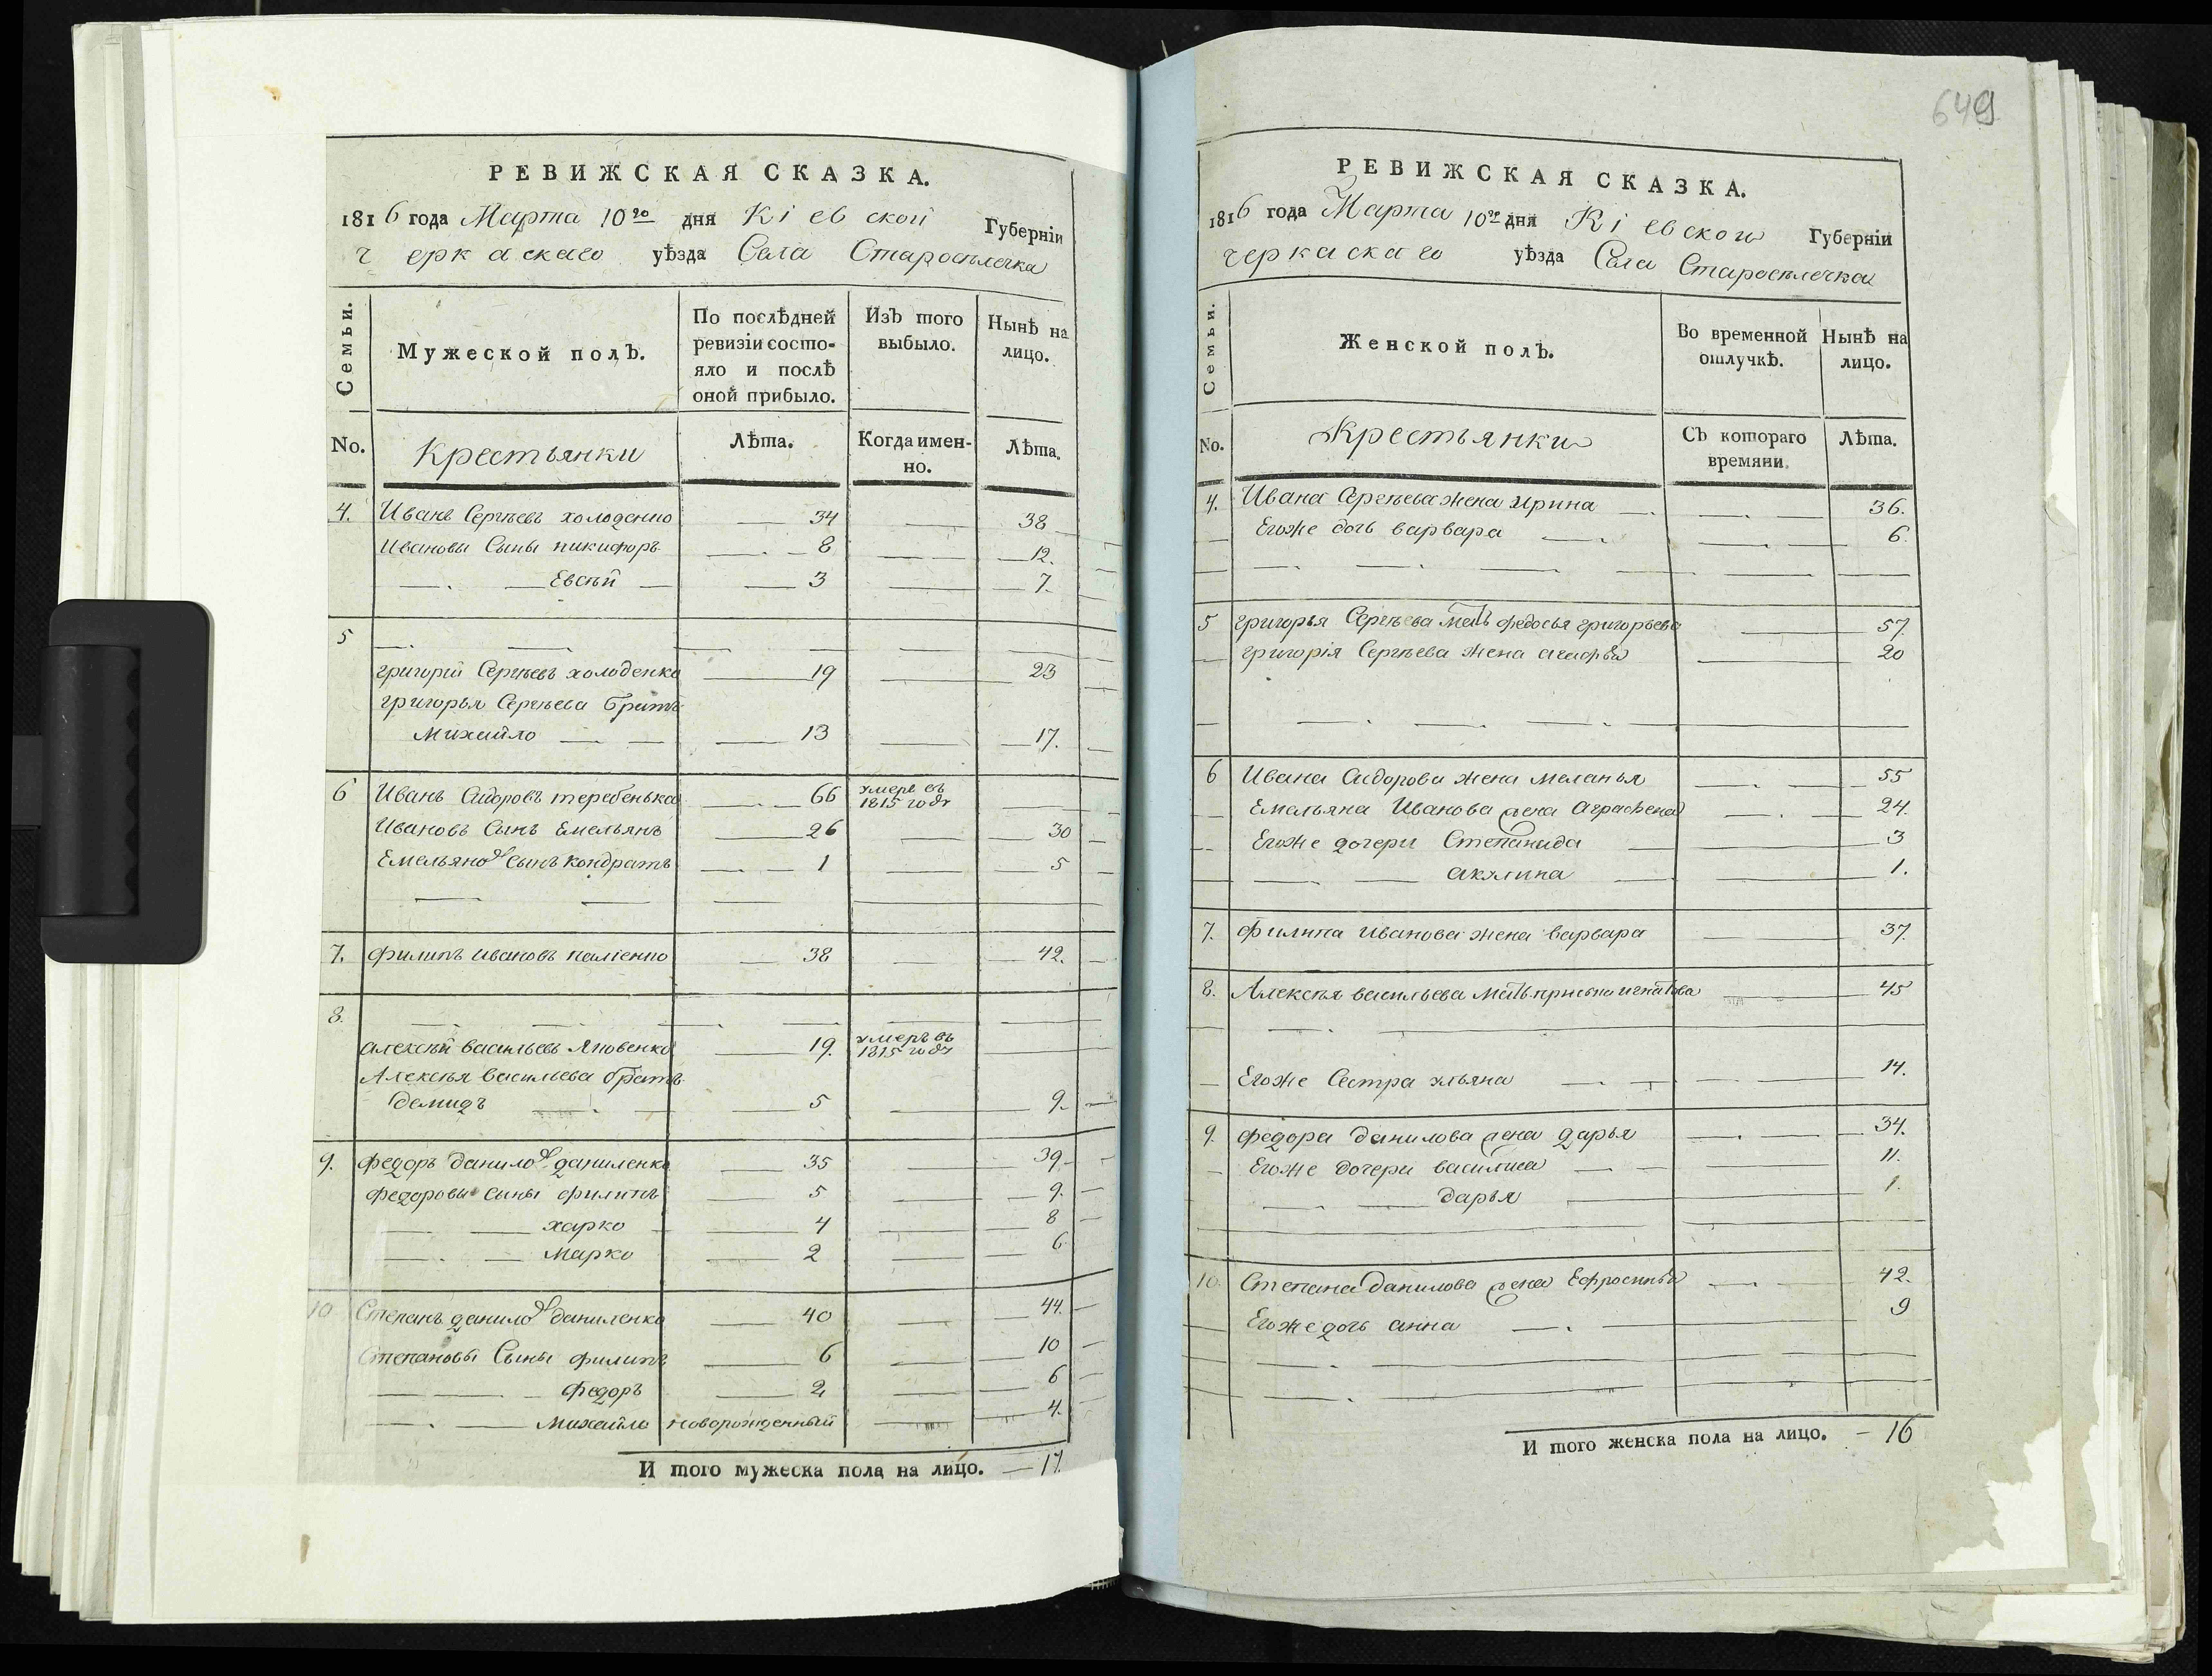 РЕВИЖСКАЯ СКАЗКА.
1816 года Марта 10го дня Кіевской Губерніи
Черкаскаго уѣзда Села Староселечка
Семьи.
Мужеской полъ.
По послѣдней ревизіи состо-
яло и послѣ
оной прибыло.
Изъ того
выбыло.
Нынѣ на
лицо.
No.
Крестьянки
Лѣта.
Когда имен-
но.
Лѣта.
4. Иванъ Сергѣевъ холоденко 34 38
Ивановы Сыны никифоръ 8 12.
Евсѣй 3 7.
5
григорій Сергѣевъ холоденко 19 23
григорья Сергѣева братъ
Михайло 13 17.
6 Иванъ Сидоровъ теребенько 66 умеръ въ 1815 году
Ивановъ Сынъ Емельянъ 26 30
Емельяновъ Сынъ кондратъ 1 5
7. филипъ ивановъ паліенко 38 42.
8.
алексѣй васильевъ Яковенко 19. умеръ въ 1815 году
Алексѣя васильева братъ
демидъ 5 9.
9. федоръ даниловъ даниленко 35 39
федоровы сыны филипъ 5 9.
харко 4 8
Марко 2 6
10 Степанъ даниловъ даниленко 40 44.
Степановы Сыны филипъ 6 10
федоръ 2 6
Михайло новорожденный 4.
И того мужеска пола на лицо. 17.
649
РЕВИЖСКАЯ СКАЗКА.
1816 года Марта 10го дня Кіевской Губерніи
черкаскаго уѣзда Села Староселечка
Семьи.
Женской полъ.
Во временной
отлучкѣ.
Нынѣ на
лицо.
No.
Крестьянки
Съ котораго
времяни.
Лѣта.
4. Ивана Сергѣева жена ирина 36.
Егоже дочь варвара 6.
5 григорья Сергѣева мать федосья григорьева 57.
григорія Сергѣева жена агафья 20
6 Ивана Сидорова жена меланья 55
Емельяна Иванова жена аграфена 24.
Егоже дочери Степанида 3
акулина 1.
7. филипа иванова жена варвара 37.
8. Алексѣя васильева мать приська игнатова 45
Егоже Сестра ульяна 14.
9. федора данилова жена дарья 34.
Егоже дочери василиса 11.
дарья 1.
10. Степана данилова жена Ефросинья 42.
Егоже дочь анна 9
И того женска пола на лицо. 16